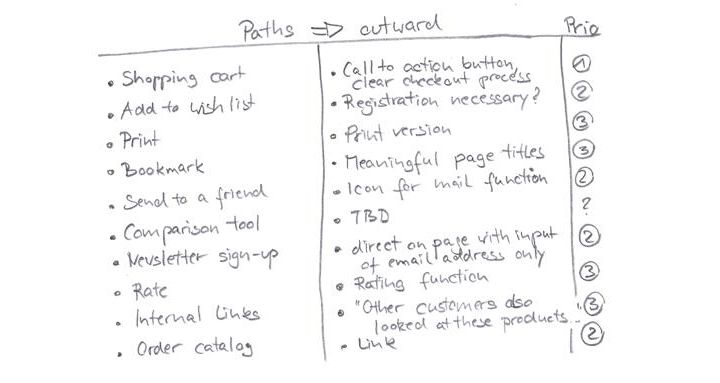 Paths => outward Prio
• Shopping cart • Call to action button, clear checkout process 1
• Add to wish list • Registration necessary? 2
• Print • Print version 3
• Bookmark • Meaningful page titles 3
• Send to a friend • Icon for mail function 2
• Comparison tool • TBD ?
• Newsletter sign-up • direct on page with input of email address only 2
• Rate • Rating function 3
• Internal Links • "Other customers also looked at these products... " 3
• Order catalog • Link 2